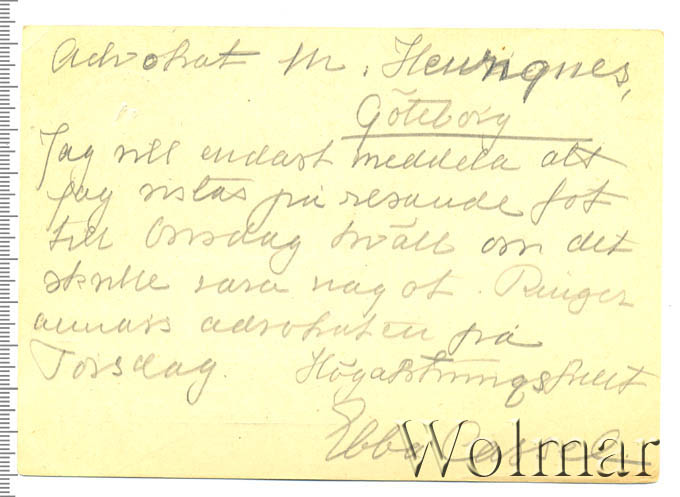 Advokat M. Henriques,
Göteborg
Jag vill endast meddela att
jag vistas på resande fot
till Onsdag kväll om det
skulle vara något. Ringer
annars advokaten på
Torsdag. Högaktningsfullt
Ebba
Wolmar